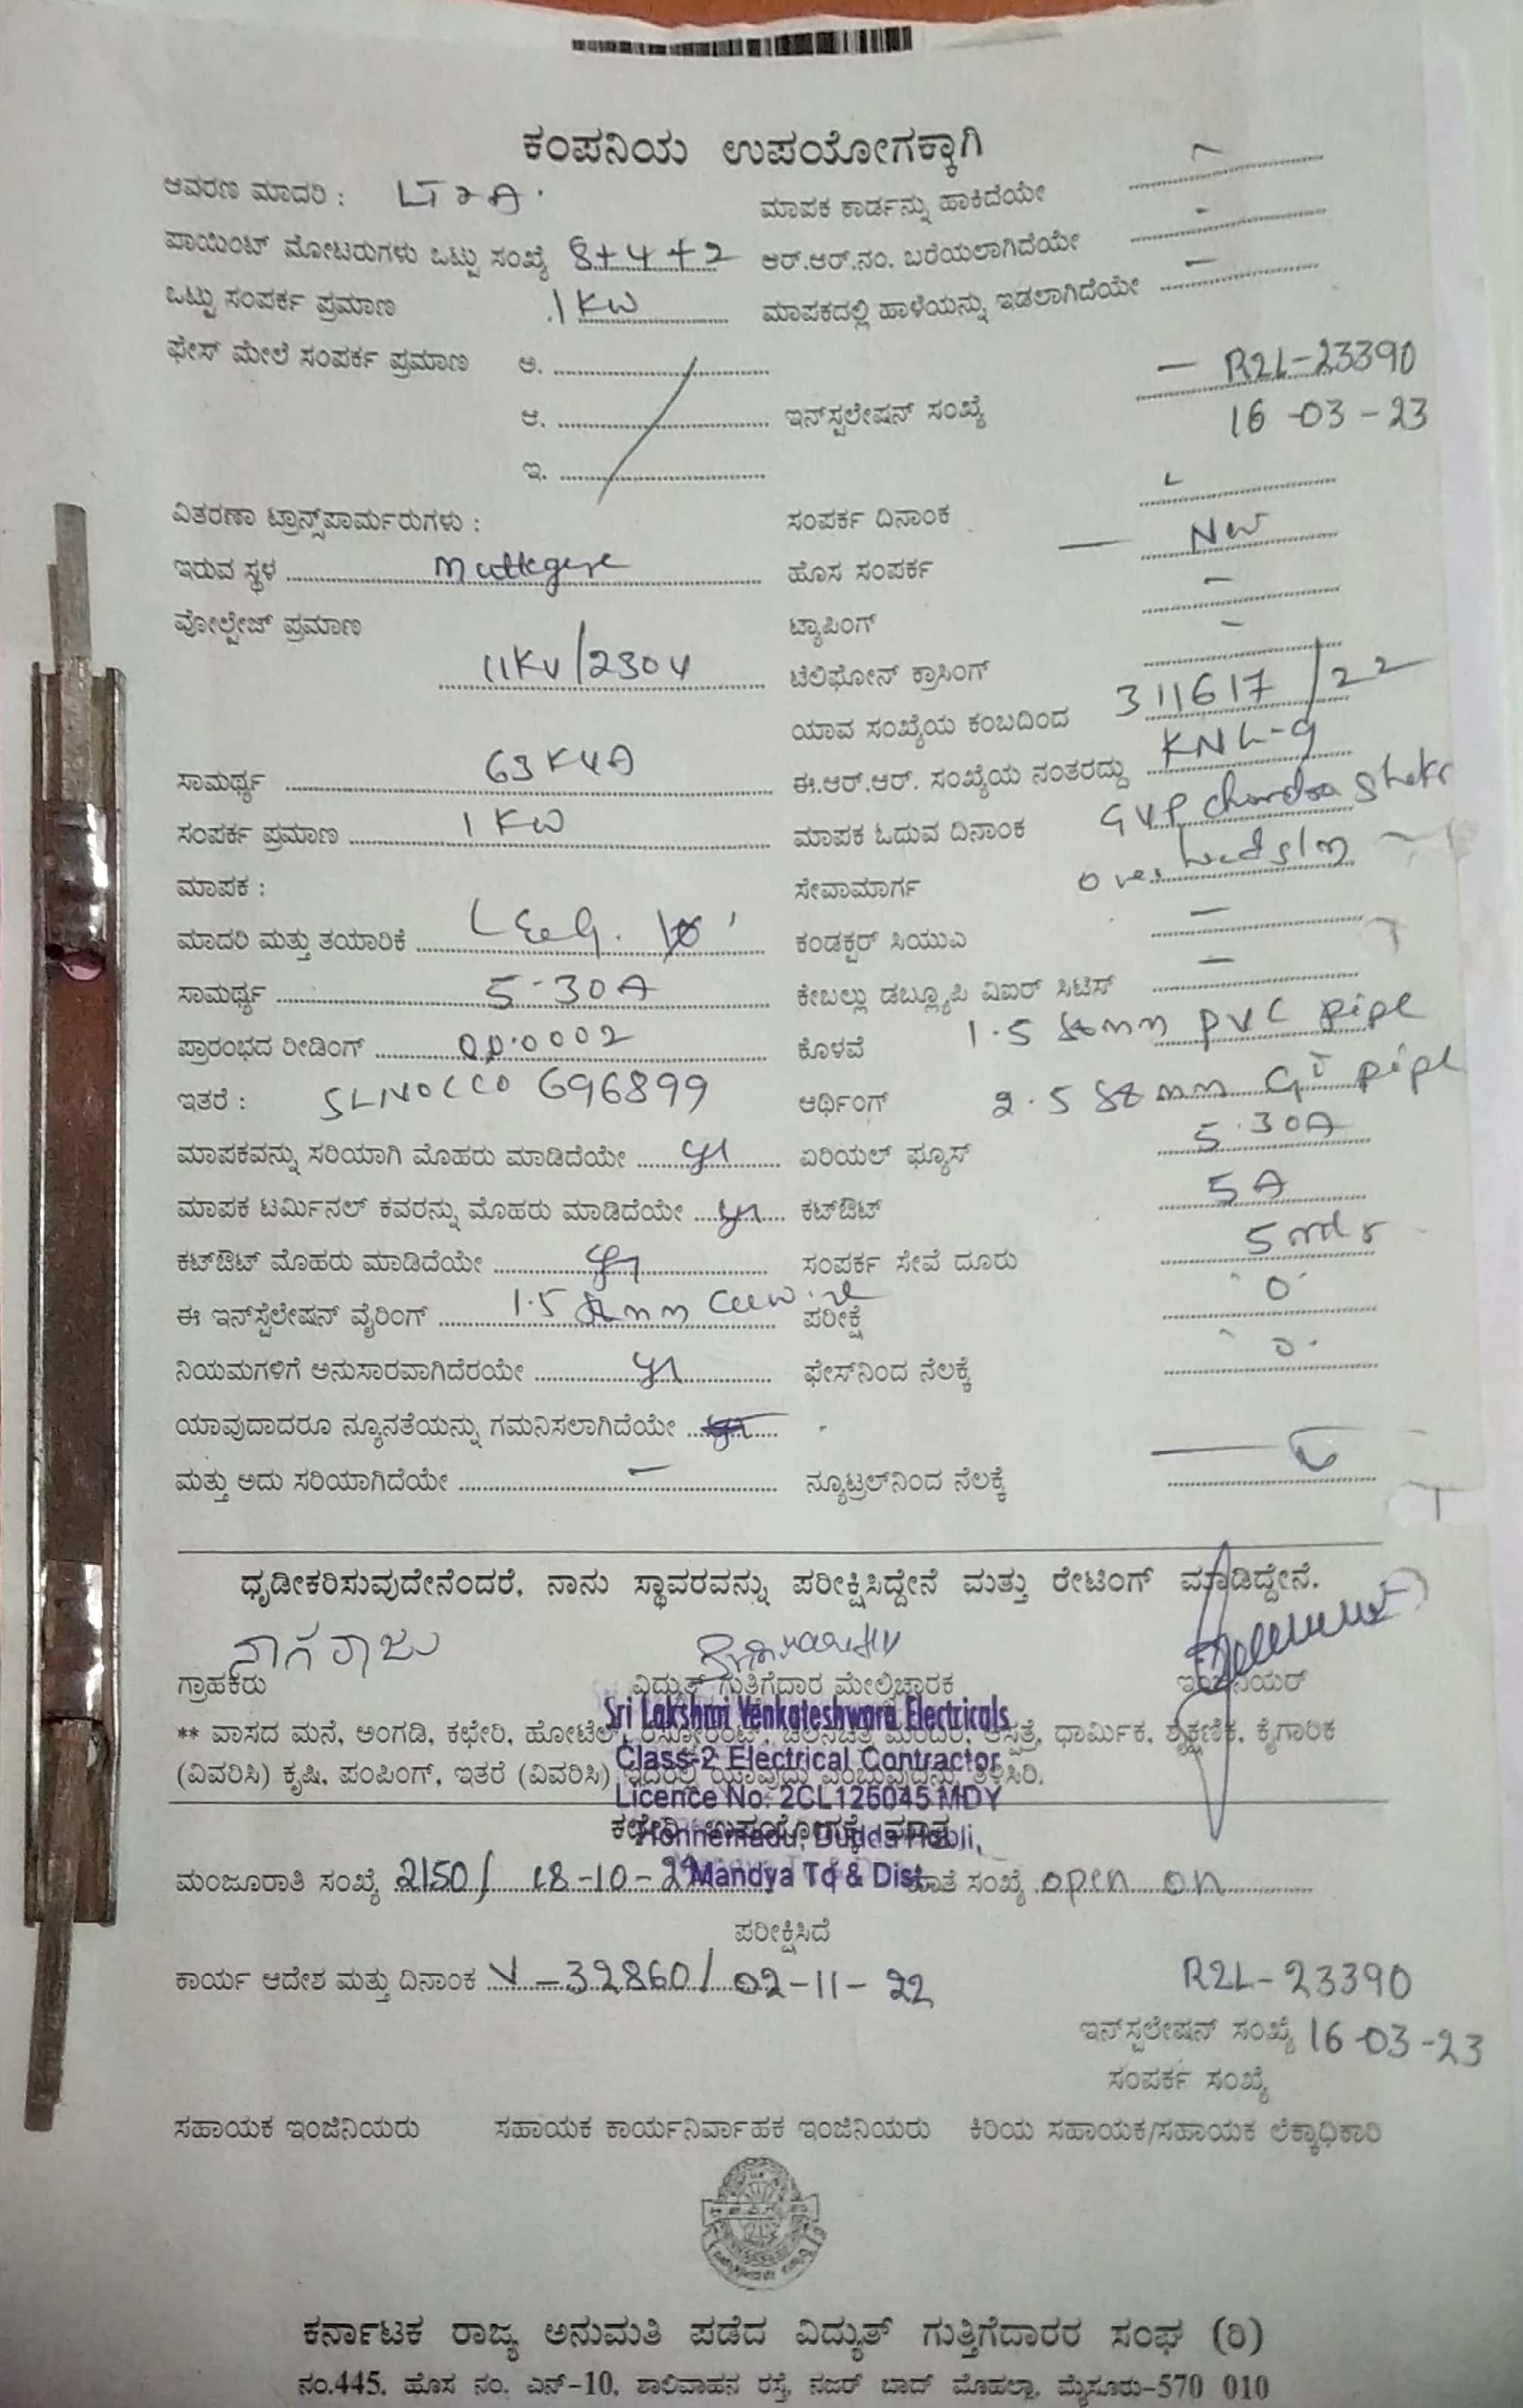 ಕಂಪನಿಯ ಉಪಯೋಗಕ್ಕಾಗಿ
ಆವರಣ ಮಾದರಿ : LT 2 A. ಮಾಪಕ ಕಾರ್ಡನ್ನು ಹಾಕಿದೆಯೇ
ಪಾಯಿಂಟ್ ಮೋಟರುಗಳು ಒಟ್ಟು ಸಂಖ್ಯೆ 8+4+2 ಆರ್.ಆರ್.ನಂ. ಬರೆಯಲಾಗಿದೆಯೇ -
ಒಟ್ಟು ಸಂಪರ್ಕ ಪ್ರಮಾಣ .1 KW ಮಾಪಕದಲ್ಲಿ ಹಾಳೆಯನ್ನು ಇಡಲಾಗಿದೆಯೇ -
ಫೇಸ್ ಮೇಲೆ ಸಂಪರ್ಕ ಪ್ರಮಾಣ ಅ. — R2L-23390
ಆ. ಇನ್‌ಸ್ಪಲೇಷನ್ ಸಂಖ್ಯೆ 16-03-23
ಇ.
ವಿತರಣಾ ಟ್ರಾನ್ಸ್‌ಪಾರ್ಮರುಗಳು : ಸಂಪರ್ಕ ದಿನಾಂಕ
ಇರುವ ಸ್ಥಳ muttegere ಹೊಸ ಸಂಪರ್ಕ — New
ವೋಲ್ಟೇಜ್ ಪ್ರಮಾಣ ಟ್ಯಾಪಿಂಗ್ -
11KV/230V ಟೆಲಿಫೋನ್ ಕ್ರಾಸಿಂಗ್ -
ಯಾವ ಸಂಖ್ಯೆಯ ಕಂಬದಿಂದ 311617/22
ಸಾಮರ್ಥ್ಯ 63 KVA ಈ.ಆರ್.ಆರ್. ಸಂಖ್ಯೆಯ ನಂತರದ್ದು KNL-9
ಸಂಪರ್ಕ ಪ್ರಮಾಣ 1 KW ಮಾಪಕ ಓದುವ ದಿನಾಂಕ GVP chandra
ಮಾಪಕ : ಸೇವಾಮಾರ್ಗ
ಮಾದರಿ ಮತ್ತು ತಯಾರಿಕೆ ಕಂಡಕ್ಟರ್ ಸಿಯುಎ -
ಸಾಮರ್ಥ್ಯ 5-30A ಕೇಬಲ್ಲು ಡಬ್ಲ್ಯೂಪಿ ವಿಐರ್ ಸಿಟಿಸ್ -
ಪ್ರಾರಂಭದ ರೀಡಿಂಗ್ 00.0002 ಕೊಳವೆ 1.5 mm PVC pipe
ಇತರೆ : 696899 ಆರ್ಥಿಂಗ್ 2.5 mm GI pipe
ಮಾಪಕವನ್ನು ಸರಿಯಾಗಿ ಮೊಹರು ಮಾಡಿದೆಯೇ yes ಏರಿಯಲ್ ಫ್ಯೂಸ್ 5.30A
ಮಾಪಕ ಟರ್ಮಿನಲ್ ಕವರನ್ನು ಮೊಹರು ಮಾಡಿದೆಯೇ yes ಕಟ್‌ಔಟ್ 5A
ಕಟ್‌ಔಟ್ ಮೊಹರು ಮಾಡಿದೆಯೇ yes ಸಂಪರ್ಕ ಸೇವೆ ದೂರು 5
ಈ ಇನ್‌ಸ್ಪೆಲೇಷನ್ ವೈರಿಂಗ್ 1.5 mm ಪರೀಕ್ಷೆ 0
ನಿಯಮಗಳಿಗೆ ಅನುಸಾರವಾಗಿದೆರಯೇ yes ಫೇಸ್‌ನಿಂದ ನೆಲಕ್ಕೆ 0
ಯಾವುದಾದರೂ ನ್ಯೂನತೆಯನ್ನು ಗಮನಿಸಲಾಗಿದೆಯೇ
ಮತ್ತು ಅದು ಸರಿಯಾಗಿದೆಯೇ — ನ್ಯೂಟ್ರಲ್‌ನಿಂದ ನೆಲಕ್ಕೆ
ಧೃಡೀಕರಿಸುವುದೇನೆಂದರೆ, ನಾನು ಸ್ಥಾವರವನ್ನು ಪರೀಕ್ಷಿಸಿದ್ದೇನೆ ಮತ್ತು ರೇಟಿಂಗ್ ಮಾಡಿದ್ದೇನೆ.
ನಾಗರಾಜು
ಗ್ರಾಹಕರು ವಿದ್ಯುತ್ ಗುತ್ತಿಗೆದಾರ ಮೇಲ್ವಿಚಾರಕ ಇಂಜಿನಿಯರ್
Sri Lakshmi Venkateshwara Electricals
** ವಾಸದ ಮನೆ, ಅಂಗಡಿ, ಕಛೇರಿ, ಹೋಟೆಲ್, ರೆಸ್ಟೋರೆಂಟ್, ಚಲನಚಿತ್ರ ಮಂದಿರ, ಆಸ್ಪತ್ರೆ, ಧಾರ್ಮಿಕ, ಶೈಕ್ಷಣಿಕ, ಕೈಗಾರಿಕ
Class-2 Electrical Contractor
(ವಿವರಿಸಿ) ಕೃಷಿ, ಪಂಪಿಂಗ್, ಇತರೆ (ವಿವರಿಸಿ) ಇದರಲ್ಲಿ ಯಾವುದು ಎಂಬುವುದನ್ನು ತಿಳಿಸಿರಿ.
Licence No: 2CL126045 MDY
ಕಛೇರಿ ಉಪಯೋಗಕ್ಕೆ ಮಾತ್ರ
Honnemadu, Dudda Hobli,
Mandya Tq & Dist.
ಮಂಜೂರಾತಿ ಸಂಖ್ಯೆ 2150/ 18-10-22 ಖಾತೆ ಸಂಖ್ಯೆ open on
ಪರೀಕ್ಷಿಸಿದೆ
ಕಾರ್ಯ ಆದೇಶ ಮತ್ತು ದಿನಾಂಕ V-32860/ 02-11-22 R2L-23390
ಇನ್‌ಸ್ಪಲೇಷನ್ ಸಂಖ್ಯೆ 16-03-23
ಸಂಪರ್ಕ ಸಂಖ್ಯೆ
ಸಹಾಯಕ ಇಂಜಿನಿಯರು ಸಹಾಯಕ ಕಾರ್ಯನಿರ್ವಾಹಕ ಇಂಜಿನಿಯರು ಕಿರಿಯ ಸಹಾಯಕ/ಸಹಾಯಕ ಲೆಕ್ಕಾಧಿಕಾರಿ
ಕರ್ನಾಟಕ ರಾಜ್ಯ ಅನುಮತಿ ಪಡೆದ ವಿದ್ಯುತ್ ಗುತ್ತಿಗೆದಾರರ ಸಂಘ (ರಿ)
ನಂ.445, ಹೊಸ ನಂ. ಎನ್-10, ಶಾಲಿವಾಹನ ರಸ್ತೆ, ನಜರ್ ಬಾದ್ ಮೊಹಲ್ಲಾ, ಮೈಸೂರು-570 010